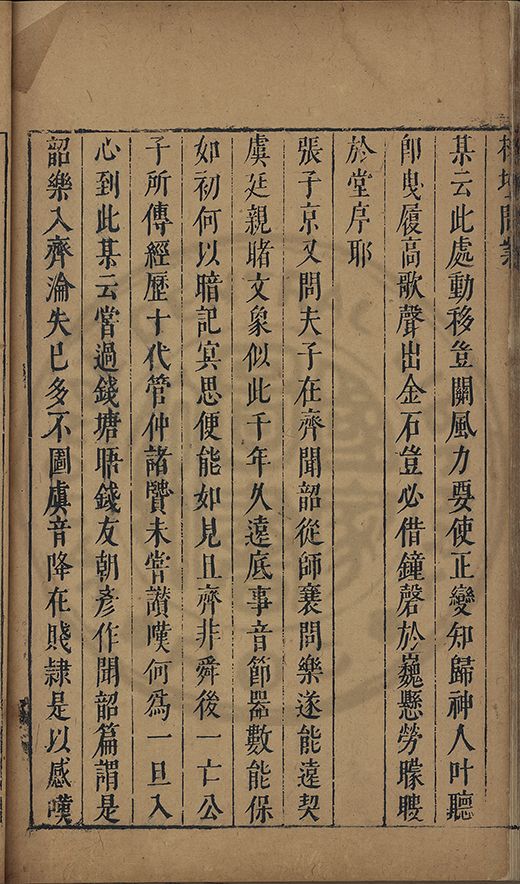 榕壇問業
某云此處動移豈關風力要使正變知歸神人叶聽
卽曳履高歌聲出金石豈必借鐘磬於巍懸勞矇瞍
於堂序耶
張子京又問夫子在齊聞韶從師襄問樂遂能遠契
虞廷親睹文象似此千年久遠底事音節器數能保
如初何以暗記㝠思便能如見且齊非舜後一亡公
子所傳經歷十代管仲諸贒未嘗讃嘆何爲一旦入
心到此某云嘗過錢塘晤錢友朝彥作聞韶篇謂是
韶樂入齊淪失已多不圖虞音降在賤隷是以感嘆